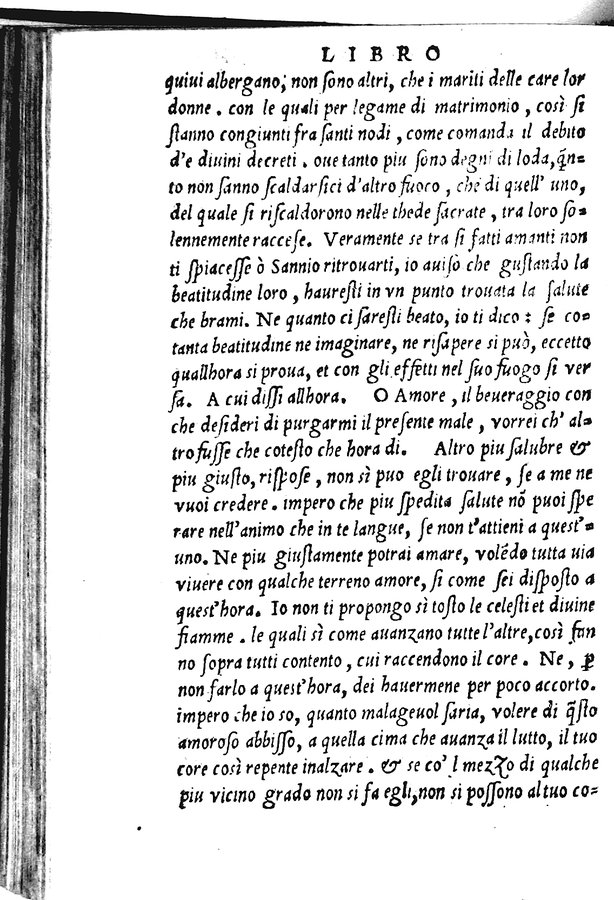 LIBRO
quiui albergano; non ſono altri, che i mariti delle care lor
donne. con le quali per legame di matrimonio, così ſi
ſtanno congiunti fra ſanti nodi, come comanda il debito
d'e diuini decreti. oue tanto piu ſono degni di loda, q̃n=
to non ſanno ſcaldarſici d'altro fuoco, che di quell' uno,
del quale ſi riſcaldorono nelle thede ſacrate, tra loro ſo=
lennemente racceſe. Veramente se tra ſi fatti amanti non
ti ſpiaceſſe ò Sannio ritrouarti, io auiſo che guſtando la
beatitudine loro, haureſti in vn punto trouata la ſalute
che brami. Ne quanto ci ſareſti beato, io ti dico: ſe co=
tanta beatitudine ne imaginare, ne riſapere si può, eccetto
quallhora si proua, et con gli effetti nel ſuo fuogo ſi ver
ſa. A cui diſſi allhora. O Amore, il beueraggio con
che deſideri di purgarmi il preſente male, vorrei ch' al=
tro fuſſe che coteſto che hora di. Altro piu ſalubre &
piu giuſto, riſpoſe, non sì puo egli trouare, ſe a me ne
vuoi credere. impero che piu ſpedita ſalute nõ puoi ſpe
rare nell'animo che in te langue, ſe non t'attieni a queſt'=
uno. Ne piu giuſtamente potrai amare, volẽdo tutta uia
viuere con qualche terreno amore, ſi come ſei diſpoſto a
queſt'hora. Io non ti propongo sì toſto le celeſti et diuine
fiamme. le quali sì come auanzano tutte l'altre, così fan
no ſopra tutti contento, cui raccendono il core. Ne, ꝑ
non farlo a queſt'hora, dei hauermene per poco accorto.
impero che io so, quanto malageuol ſaria, volere di q̃ſto
amoroſo abbiſſo, a quella cima che auanza il lutto, il tuo
core così repente inalzare. & se co' l mezzo di qualche
piu vicino grado non si fa egli, non si poſſono al tuo co=